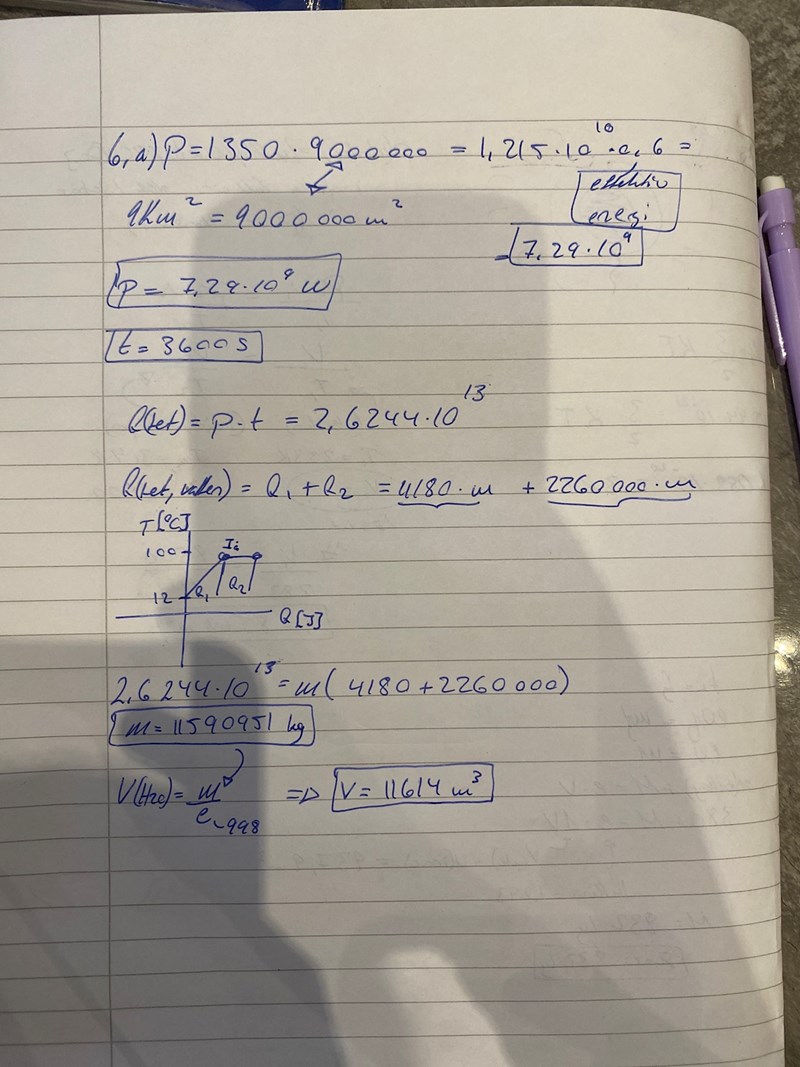 6,a) P = 1350 · 9000000 = 1,215·10¹⁰ · 0,6 =
effektiv
energi
9Km² = 9000 000 m²
= 7,29·10⁹
P = 7,29·10⁹ W
t = 3600 s
Q(tot) = p·t = 2,6244·10¹³
Q(tot, vatten) = Q₁ + Q₂ = 4180·m + 2260 000·m
T[°C]
100
12
Q₁ Q₂
Q[J]
2,6244·10¹³ = m( 4180 + 2260 000)
m = 11590951 kg
V(H₂O) = m/ρ ~998 => V = 11614 m³